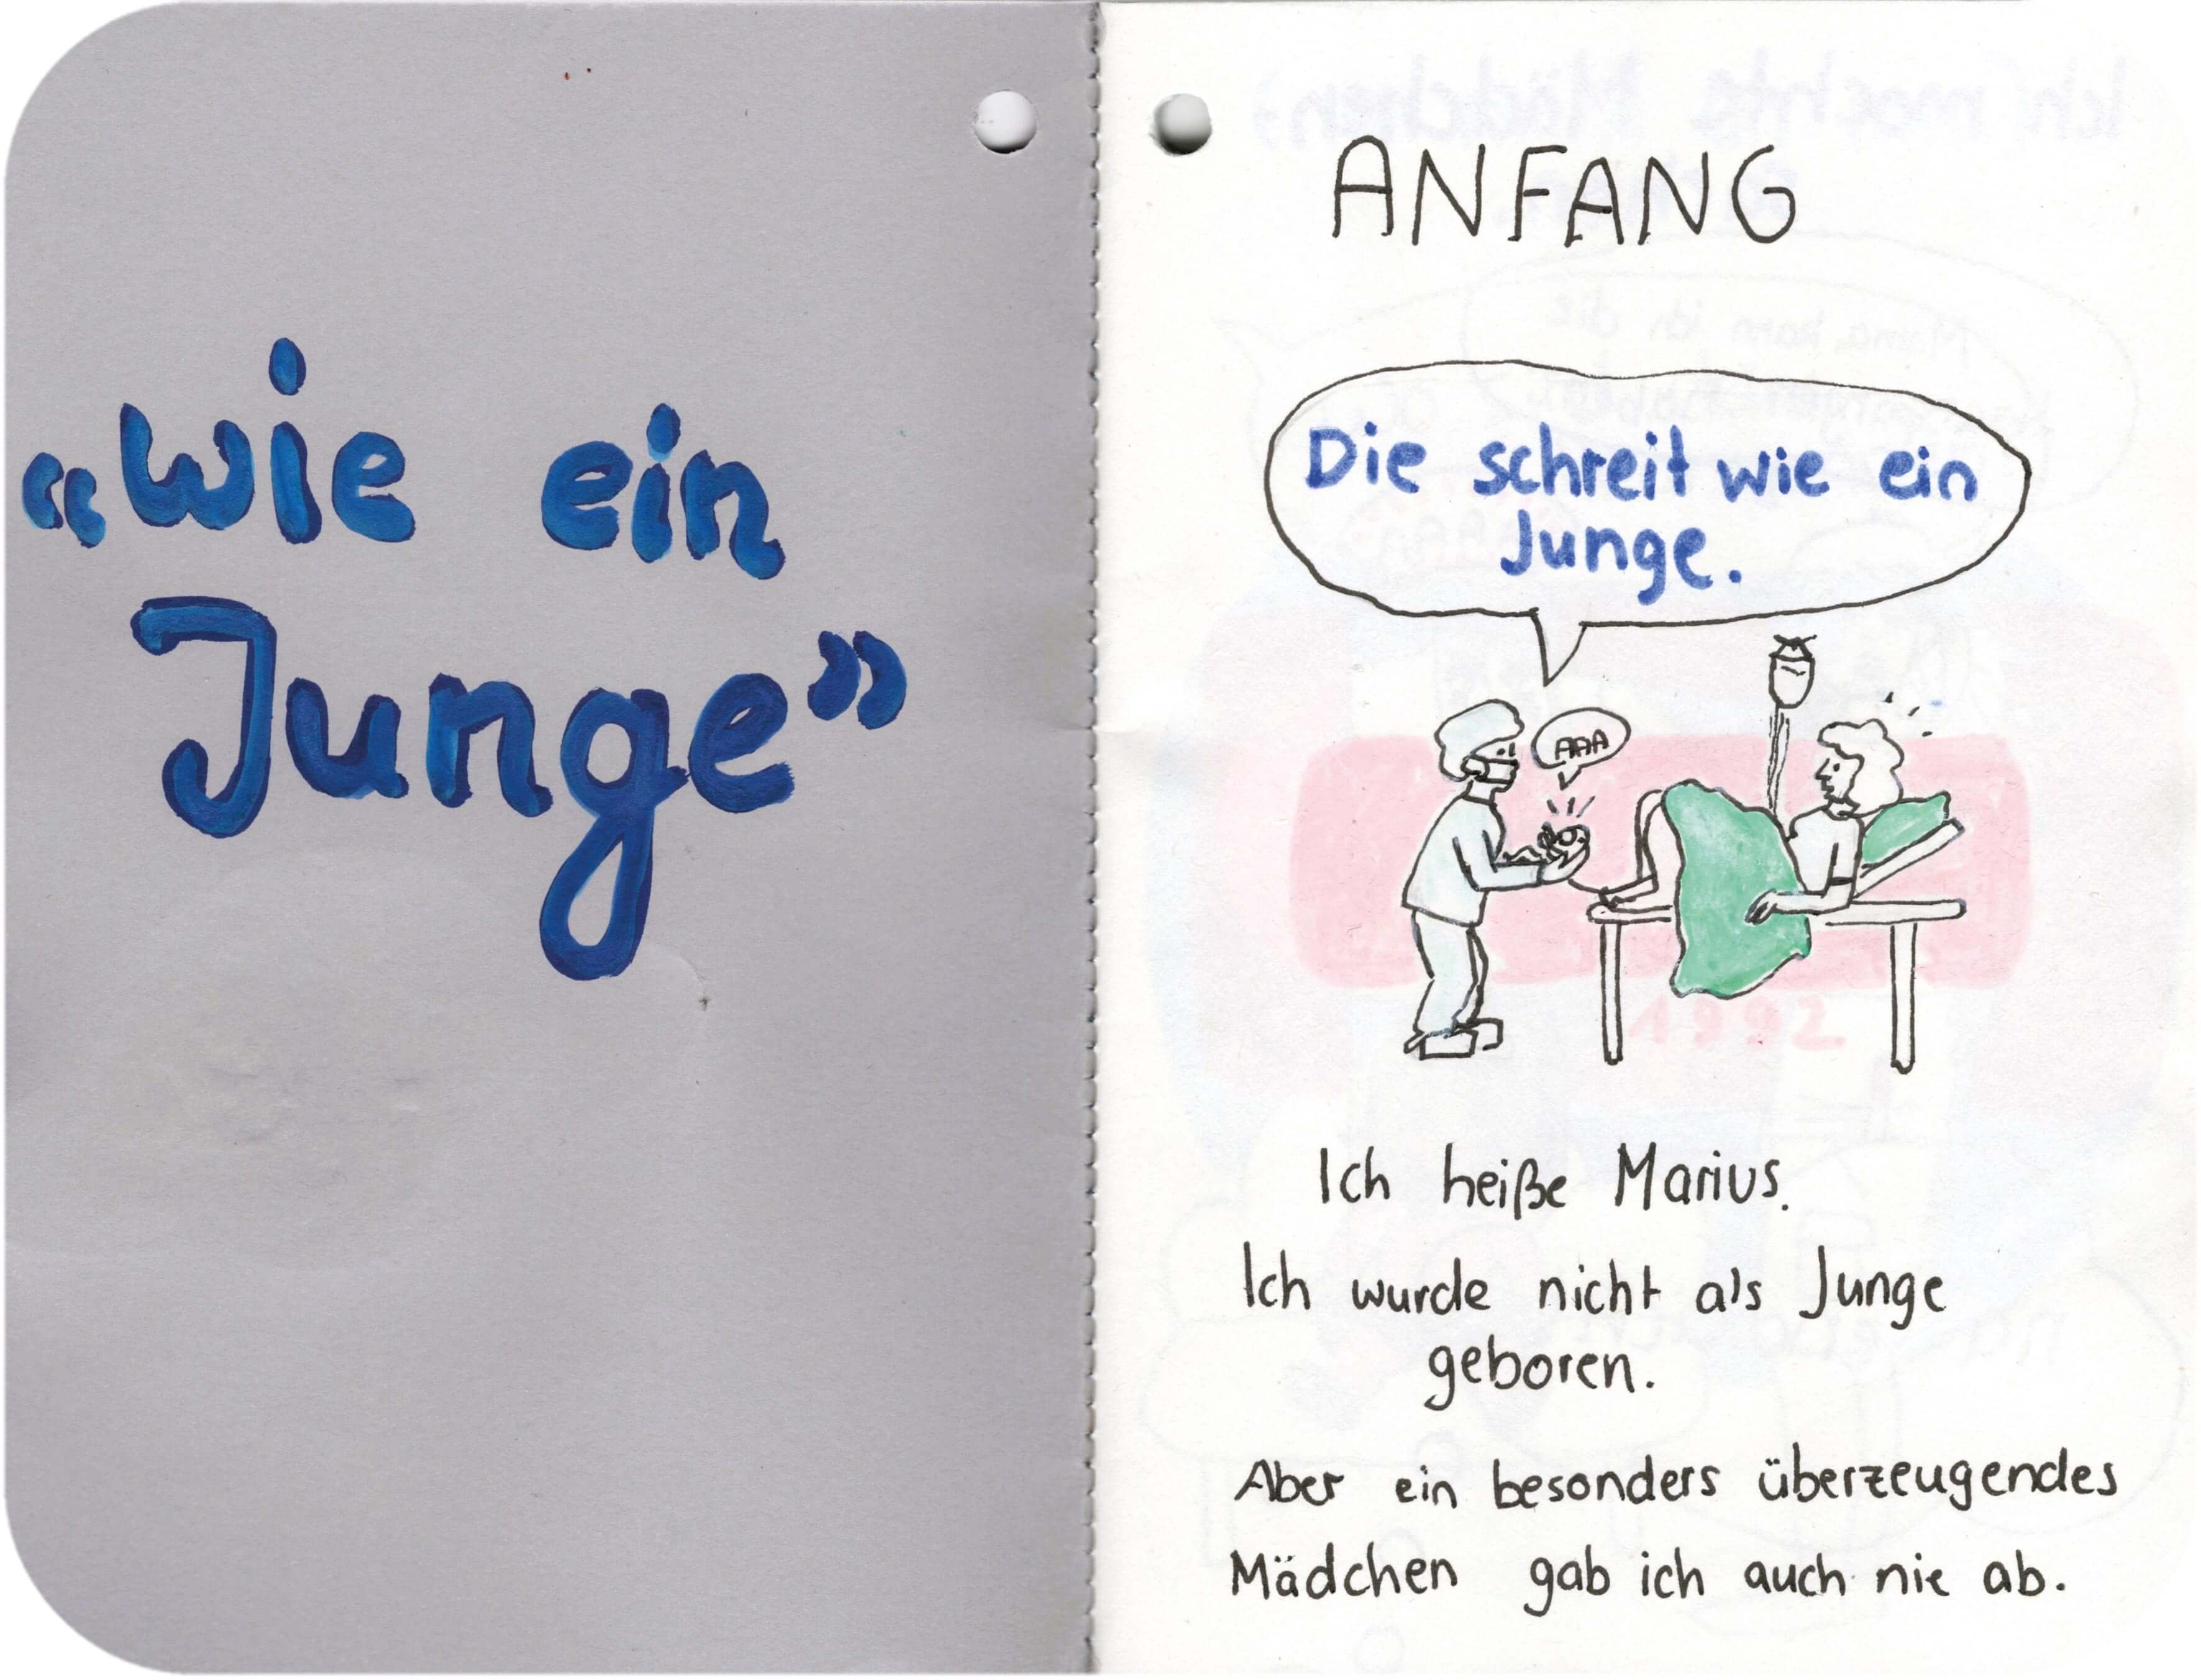 «wie ein
Junge»
ANFANG
Die schreit wie ein
Junge.
AAA
1992
Ich heiße Marius.
Ich wurde nicht als Junge
geboren.
Aber ein besonders überzeugendes
Mädchen gab ich auch nie ab.